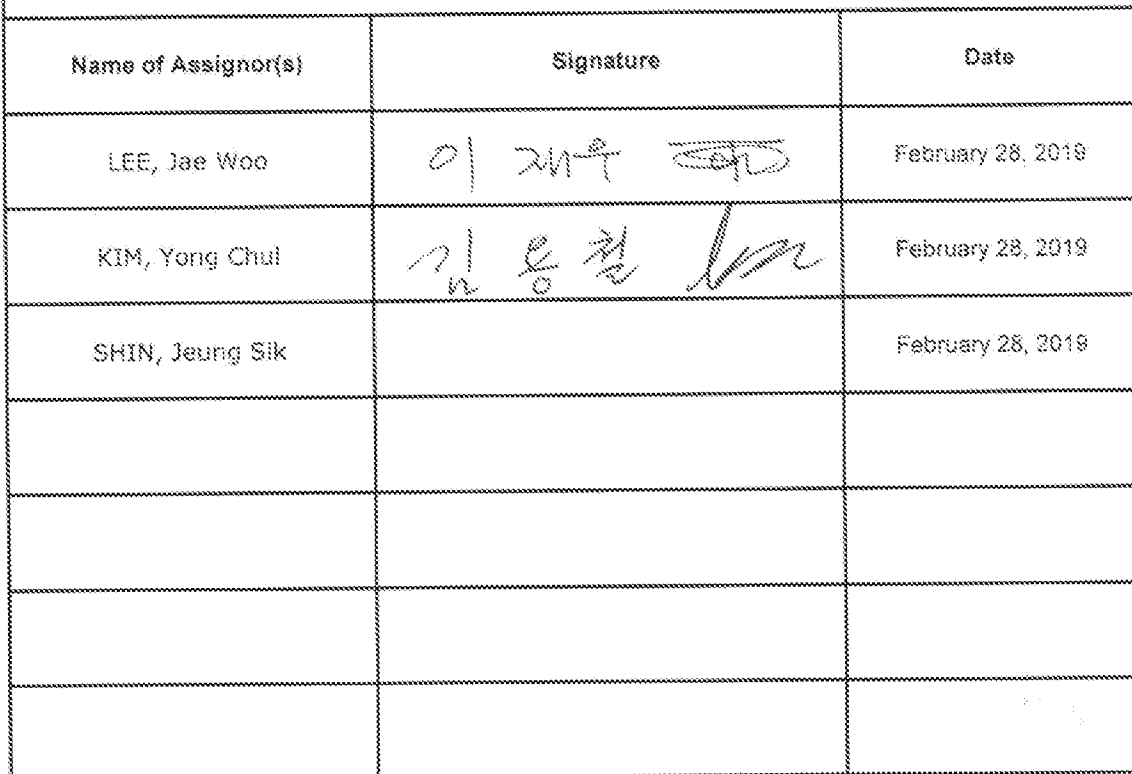 Name of Assignor(s) Signature Date
LEE, Jae Woo 이 재우 February 28, 2019
KIM, Yong Chul 김 용 철 February 28, 2019
SHIN, Jeung Sik February 28, 2019